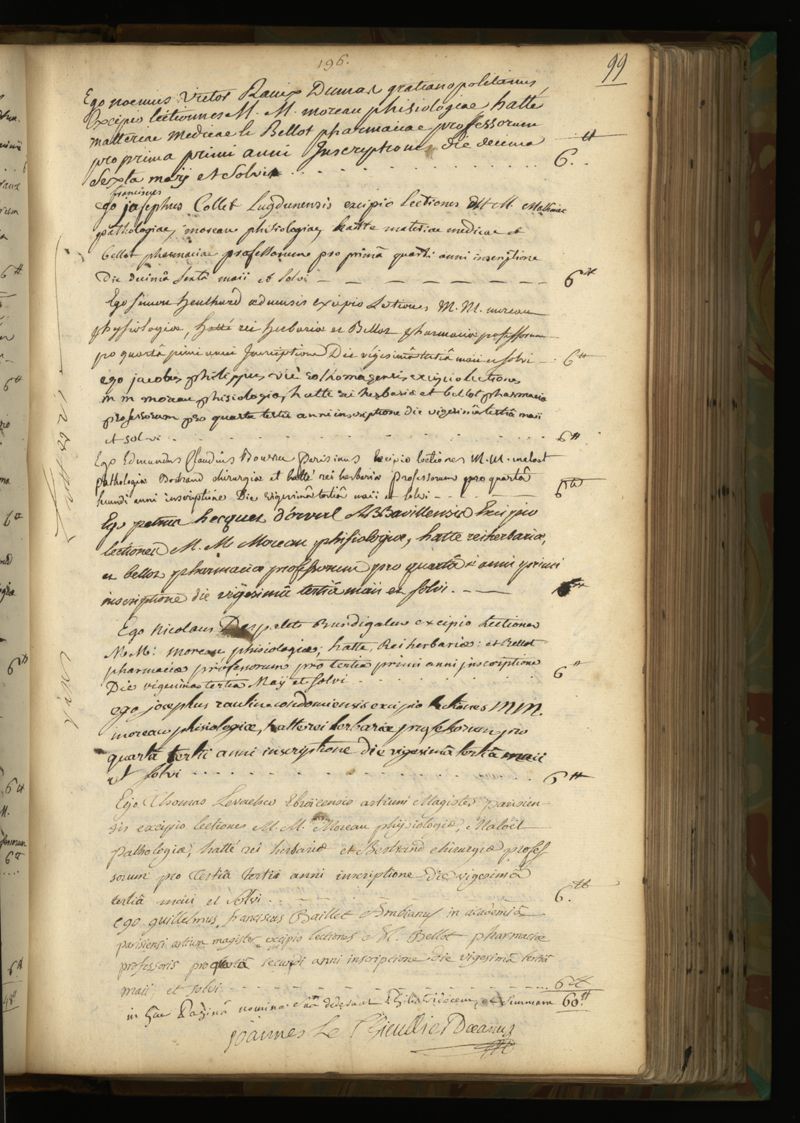 196.
99
Ego noemus Victor Dumas gratianopolitanus
Excipio lectionnes M. M. moreau phisiologeae hatté
matteriae Medicae le Bellot pharmaciae professorum
pro prima primi anni Inscriptione die decima
Sexta maij et Solvi 6.tt
franciscus
Ego josephus Collet Lugdunensis excipio lectiones M. M.
pathologiae, moreau phisiologiae, hatte materiae medicae et
bellot pharmaciae professorum pro primâ quarti anni inscriptione
Die decimâ Sextâ maii et Solvi 6tt
Ego simon aeduensis excipio Lectiones M. M. moreau
physiologiae, Hatté rei Herbariae et Bellot pharmaciae professorum
pro quartâ primi anni Inscriptione Die vigesimâ tertiâ maii et solvi 6tt
ego jacobus philippus vié rothomagensis excipio lectiones
m m moreau phisiologiae, hatte rei herbariae et bellot pharmaciae
professorum pro quarta tertii anni inscriptione die vigesimâ tertiâ maii
et solvi 6tt
Ego Edmundus Claudius Bourru Parisinus Excipio lectiones M. M. maloet
pathologiae Bertrand chirurgiae et hatté rei herbariae Professorum pro quartâ
secundi anni inscriptione Die vigesimâ tertiâ maii et solvi 6tt
Ego petrus hecquet d'orval Abbavillensis Excipio
lectiones M. M. Moreau phisiologiae, hatte rei herbariae,
et bellot pharmaciae professorum pro quartâ anni primi
inscriptione die vigesimâ tertiâ maii et solvi. 6tt
Ego Nicolaus Burdigalus excipio Lectiones
M. M. moreau phisiologiae, hatte, Rei herbariae, et Bellot
pharmaciae professorum pro tertia primi anni inscriptione
Die vigesima tertia Maij et solvi 6tt
ego josephus raulin condomiensis excipio lectiones M M.
moreau phisiologiae, hatte rei herbariae professorum pro
quartâ tertii anni inscriptione die vigesimâ tertiâ maii
et solvi 6tt
Ego Thomas Levacher Ebroicensis artium Magister parisien-
sis excipio lectiones M. M. Moreau physiologiae, Maloët
Pathologiae, hatté rei herbariae et Bertrand chirurgiae profes
sorum pro tertiâ tertii anni inscriptione die vigesimâ
tertiâ maii et solvi. 6.tt
Ego guillelmus franciscus Baillet Ambianus in academiâ
parisiensi artium magister excipio lectiones M. Bellot pharmaciae
professoris pro quartâ secundi anni inscriptione die vigesimâ tertiâ
maii et solvi 6tt
in hac Paginâ nomina sua dederunt Philiatri decem, et Summam 60tt
Joannes Le Thieullier Decanus